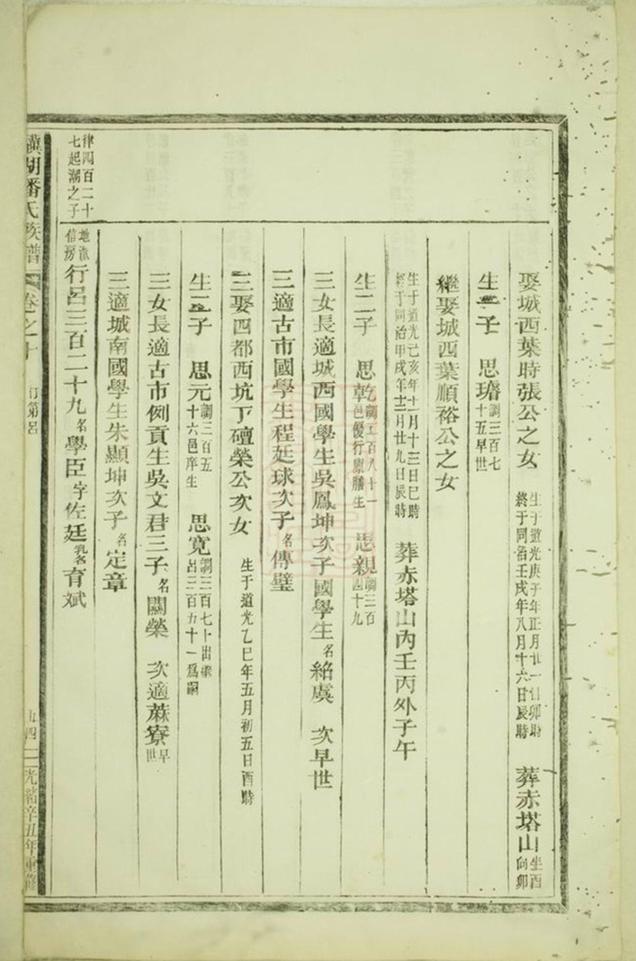 娶城西葉時張公之女 生于道光庚子年正月廿一日卯時 終于同治壬戌年八月十六日辰時 葬赤塔山 坐酉向卯
生一子 思璿 調三百七十五早世
繼娶城西葉順裕公之女
生于道光己亥年十一月十三日巳時 終于同治甲戌年十二月廿九日辰時 葬赤塔山內壬丙外子午
生二子 思乾 調三百八十一邑優行廩膳生 思親 調三百四十九
三女長適城西國學生吳鳳坤次子國學生名紹虞 次早世
三適古市國學生程廷球次子名傳璧
三娶四都西坑下礶榮公次女 生于道光乙巳年五月初五日酉時
生二子 思元 調三百五十六邑庠生 思寬 調三百七十出繼呂三百九十一爲嗣
三女長適古市例貢生吳文君三子名闓榮 次適蔴寮早世
三適城南國學生朱顯坤次子名定章
律四百二十七起瀾之子
地派信房行呂三百二十九名學臣字佐廷乳名育斌
潘氏族譜 卷之十 行第呂 光緒辛丑年重修